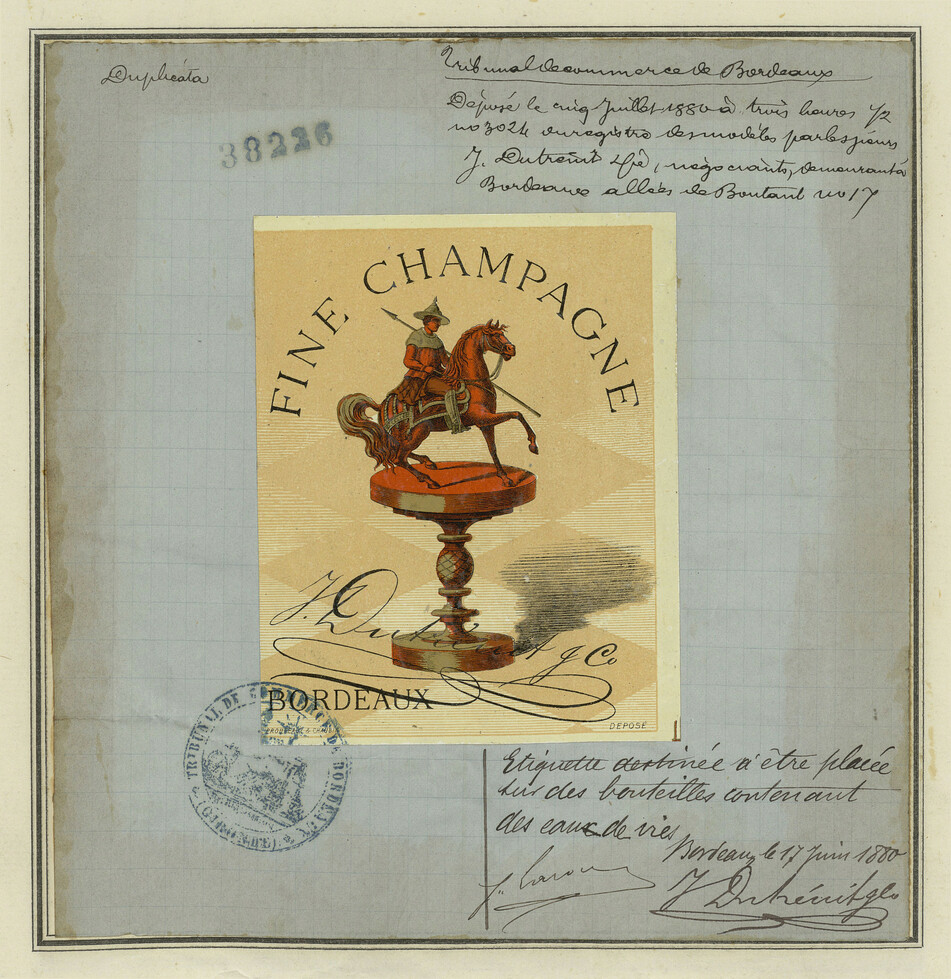 Duplicáta
Tribunal de commerce de Bordeaux
Déposé le cinq Juillet 1880 à trois heures 1/2
no 3024 du registre des modèles par les sieurs
J. Dutrénit & Cie, négociants, demeurant à
Bordeaux allées de Boutaut no 17
38226
FINE CHAMPAGNE
J. Dutrénit & Co
BORDEAUX
DEPOSÉ
TRIBUNAL DE COMMERCE DE BORDEAUX
(GIRONDE)
Etiquette destinée à être placée
sur des bouteilles contenant
des eaux de vies
Bordeaux, le 17 Juin 1880
J Dutrénit & Co